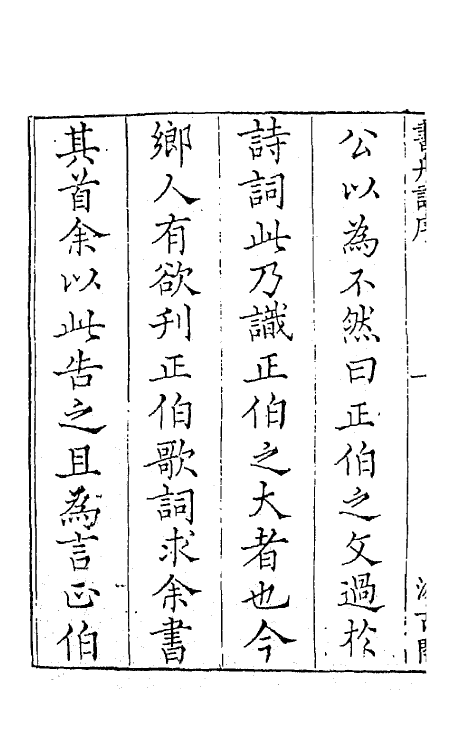 書舟詞序
一
汲古閣
公以為不然曰正伯之文過於
詩詞此乃識正伯之大者也今
鄉人有欲刋正伯歌詞求余書
其首余以此告之且為言正伯